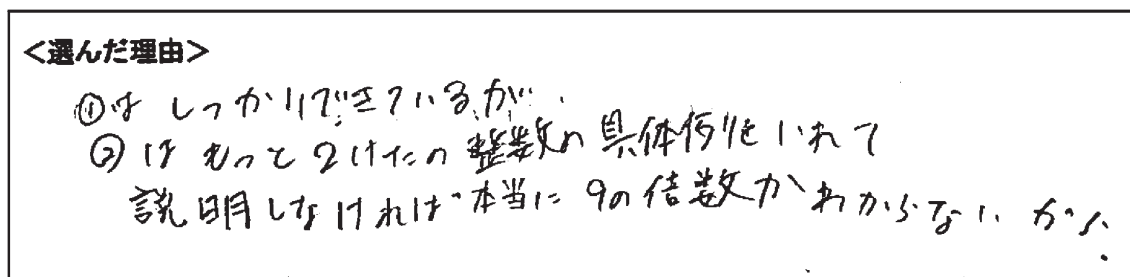 <選んだ理由>
①は しっかりできているが、
②は もっと2けたの整数の具体例をいれて
説明しなければ本当に9の倍数かわからないから.